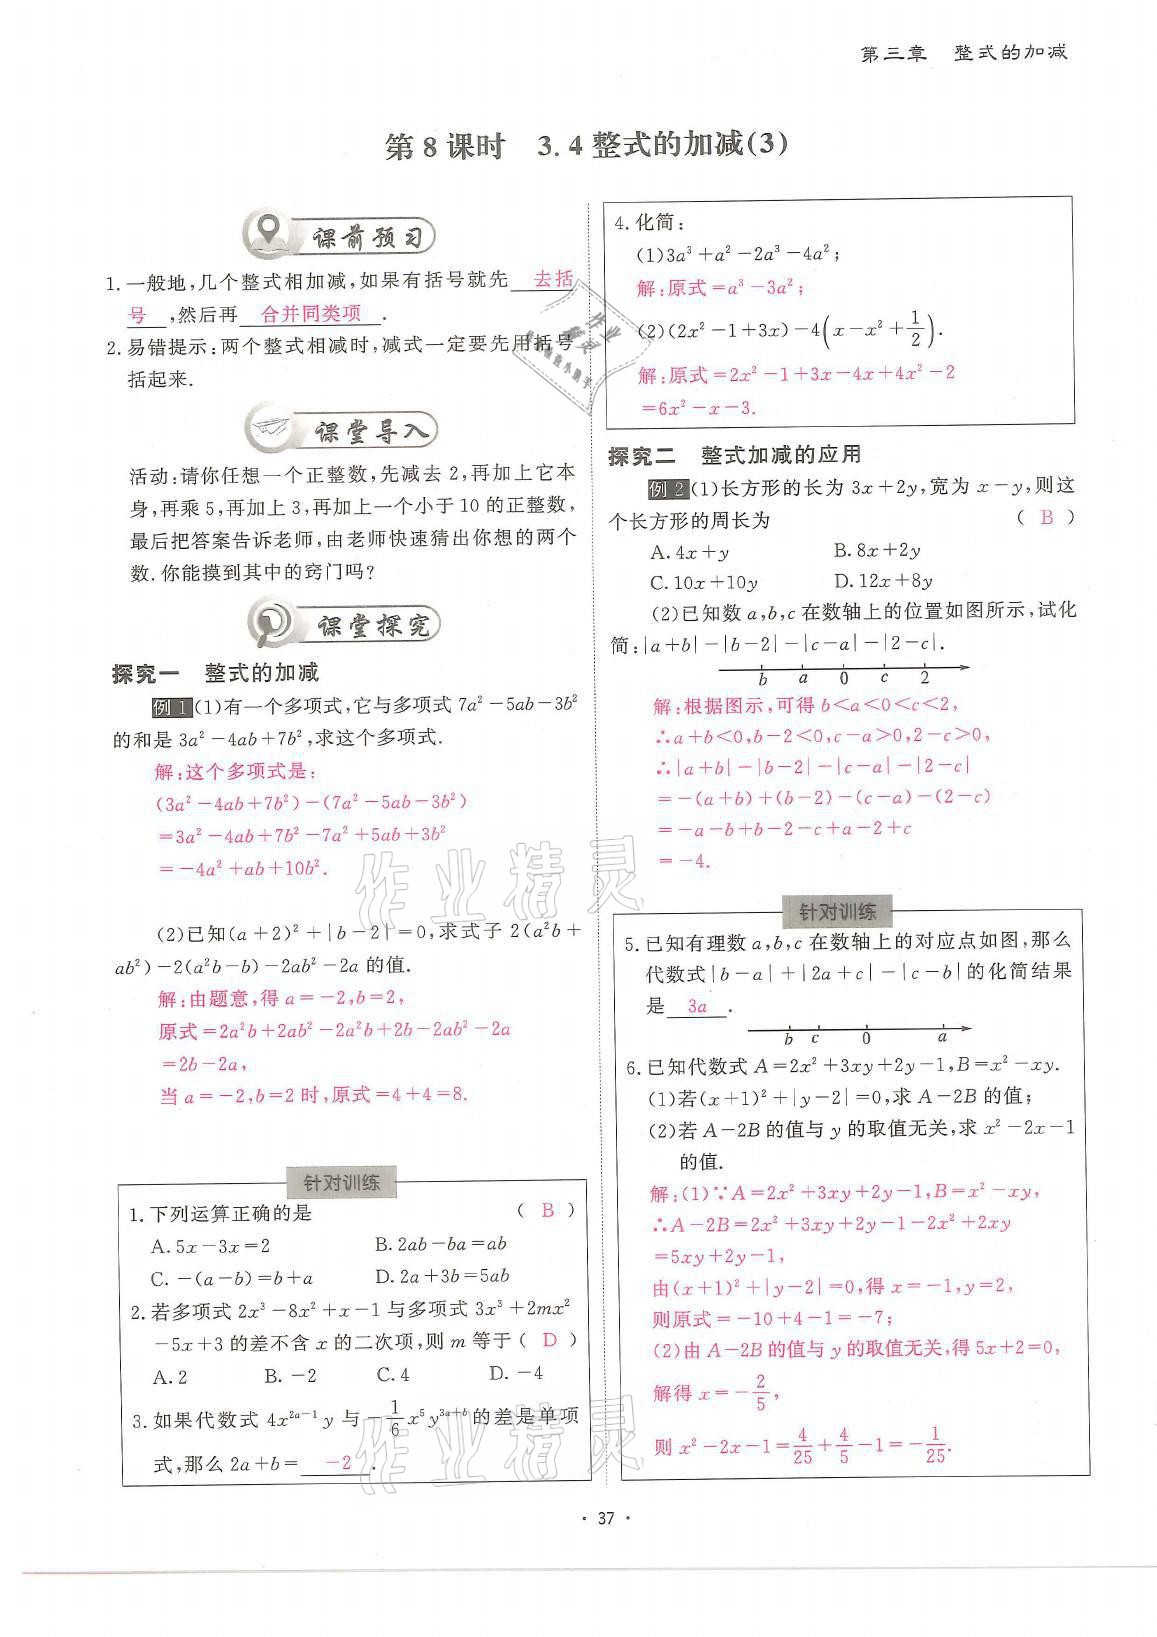 第三章 整式的加减
第 8 课时 3.4 整式的加减(3)
课前预习
1.一般地,几个整式相加减,如果有括号就先 去括
号 ,然后再 合并同类项 .
2.易错提示:两个整式相减时,减式一定要先用括号
括起来.
课堂导入
活动:请你任想一个正整数,先减去 2,再加上它本
身,再乘 5,再加上 3,再加上一个小于 10 的正整数,
最后把答案告诉老师,由老师快速猜出你想的两个
数.你能摸到其中的窍门吗?
课堂探究
探究一 整式的加减
例 1 (1)有一个多项式,它与多项式 7a²-5ab-3b²
的和是 3a²-4ab+7b²,求这个多项式.
解:这个多项式是:
(3a²-4ab+7b²)-(7a²-5ab-3b²)
=3a²-4ab+7b²-7a²+5ab+3b²
=-4a²+ab+10b².
(2)已知(a+2)²+|b-2|=0,求式子 2(a²b+
ab²)-2(a²b-b)-2ab²-2a 的值.
解:由题意,得 a=-2,b=2,
原式=2a²b+2ab²-2a²b+2b-2ab²-2a
=2b-2a,
当 a=-2,b=2 时,原式=4+4=8.
针对训练
1.下列运算正确的是 ( B )
A.5x-3x=2 B.2ab-ba=ab
C.-(a-b)=b+a D.2a+3b=5ab
2.若多项式 2x³-8x²+x-1 与多项式 3x³+2mx²
-5x+3 的差不含 x 的二次项,则 m 等于( D )
A.2 B.-2 C.4 D.-4
3.如果代数式 4x²ᵃ⁻¹y 与 -1/6 x⁵y³ᵃ⁺ᵇ 的差是单项
式,那么 2a+b= -2 .
4.化简:
(1)3a³+a²-2a³-4a²;
解:原式=a³-3a²;
(2)(2x²-1+3x)-4(x-x²+1/2).
解:原式=2x²-1+3x-4x+4x²-2
=6x²-x-3.
探究二 整式加减的应用
例 2 (1)长方形的长为 3x+2y,宽为 x-y,则这
个长方形的周长为 ( B )
A.4x+y B.8x+2y
C.10x+10y D.12x+8y
(2)已知数 a,b,c 在数轴上的位置如图所示,试化
简:|a+b|-|b-2|-|c-a|-|2-c|.
b a 0 c 2
解:根据图示,可得 b<a<0<c<2,
∴a+b<0,b-2<0,c-a>0,2-c>0,
∴|a+b|-|b-2|-|c-a|-|2-c|
=-(a+b)+(b-2)-(c-a)-(2-c)
=-a-b+b-2-c+a-2+c
=-4.
针对训练
5.已知有理数 a,b,c 在数轴上的对应点如图,那么
代数式|b-a|+|2a+c|-|c-b|的化简结果
是 3a .
b c 0 a
6.已知代数式 A=2x²+3xy+2y-1,B=x²-xy.
(1)若(x+1)²+|y-2|=0,求 A-2B 的值;
(2)若 A-2B 的值与 y 的取值无关,求 x²-2x-1
的值.
解:(1)∵A=2x²+3xy+2y-1,B=x²-xy,
∴A-2B=2x²+3xy+2y-1-2x²+2xy
=5xy+2y-1,
由(x+1)²+|y-2|=0,得 x=-1,y=2,
则原式=-10+4-1=-7;
(2)由 A-2B 的值与 y 的取值无关,得 5x+2=0,
解得 x=-2/5,
则 x²-2x-1=4/25+4/5-1=-1/25.
作业精灵
作业精灵
· 37 ·